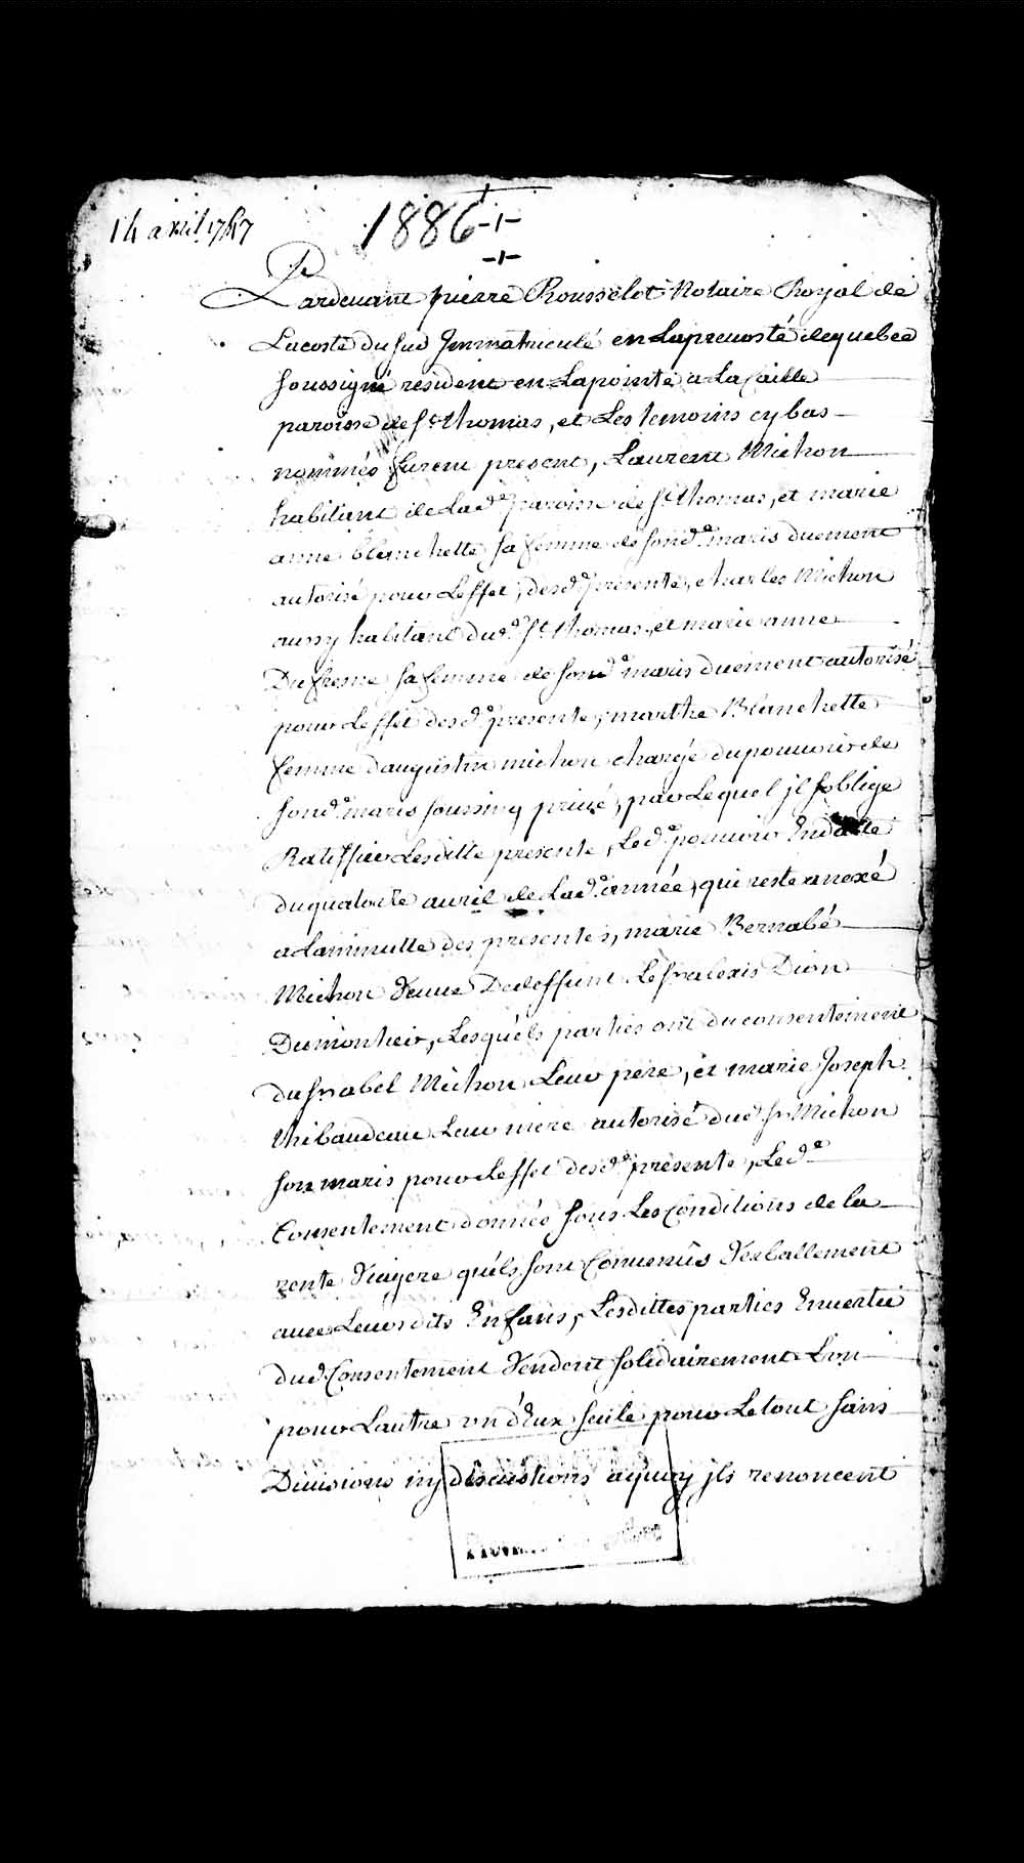 14 avril 1747
1886
Pardevant pierre Rousselot Notaire Royal de
Lacoste du sud Jmmatriculé en Laprevosté dequebec
soussigné resident en Lapointe a La Caille
paroisse de St thomas, et Les temoins cy bas
nommés furent present, Laurent Michon
habitant de Lade paroisse de St thomas, et marie
anne blanchette sa femme de sond. maris duement
autorisé pour Leffet desde presente, charles Michon
aussy habitant dud. St thomas, et marie anne
Dufresne sa femme de sond. maris duement autorisé
pour Leffet desde presente, marthe Blanchette
femme d'augustin michon chargé du pouvoir de
sond. maris soussing privé, par Lequel jl soblige
Ratiffier Lesditte presente, Led. pouvoir En datte
duquatorze avril de Lade année, qui reste anexé
a Laminutte des presentes, marie Bernabé
Michon Veuve De deffunt Le sr alexis Dion
Dumontier, Lesquéls parties ont du consentement
du sr abel Michon Leur pere, et marie Joseph
thibaudeau Leur mere autorisé dud sr Michon
son maris pour Leffet desde presente, Led.
Consentement donnée sous Les Conditions de la
rente Viagere quéls sont Convenûs Verballement
avec Leursdits Enfans, Lesdittes parties Envertu
dud Consentement Vendent solidairement L'un
pour Lautre un d'Eux seule pour Le tout sans
Divisions ny discustions aquoy jls renoncent